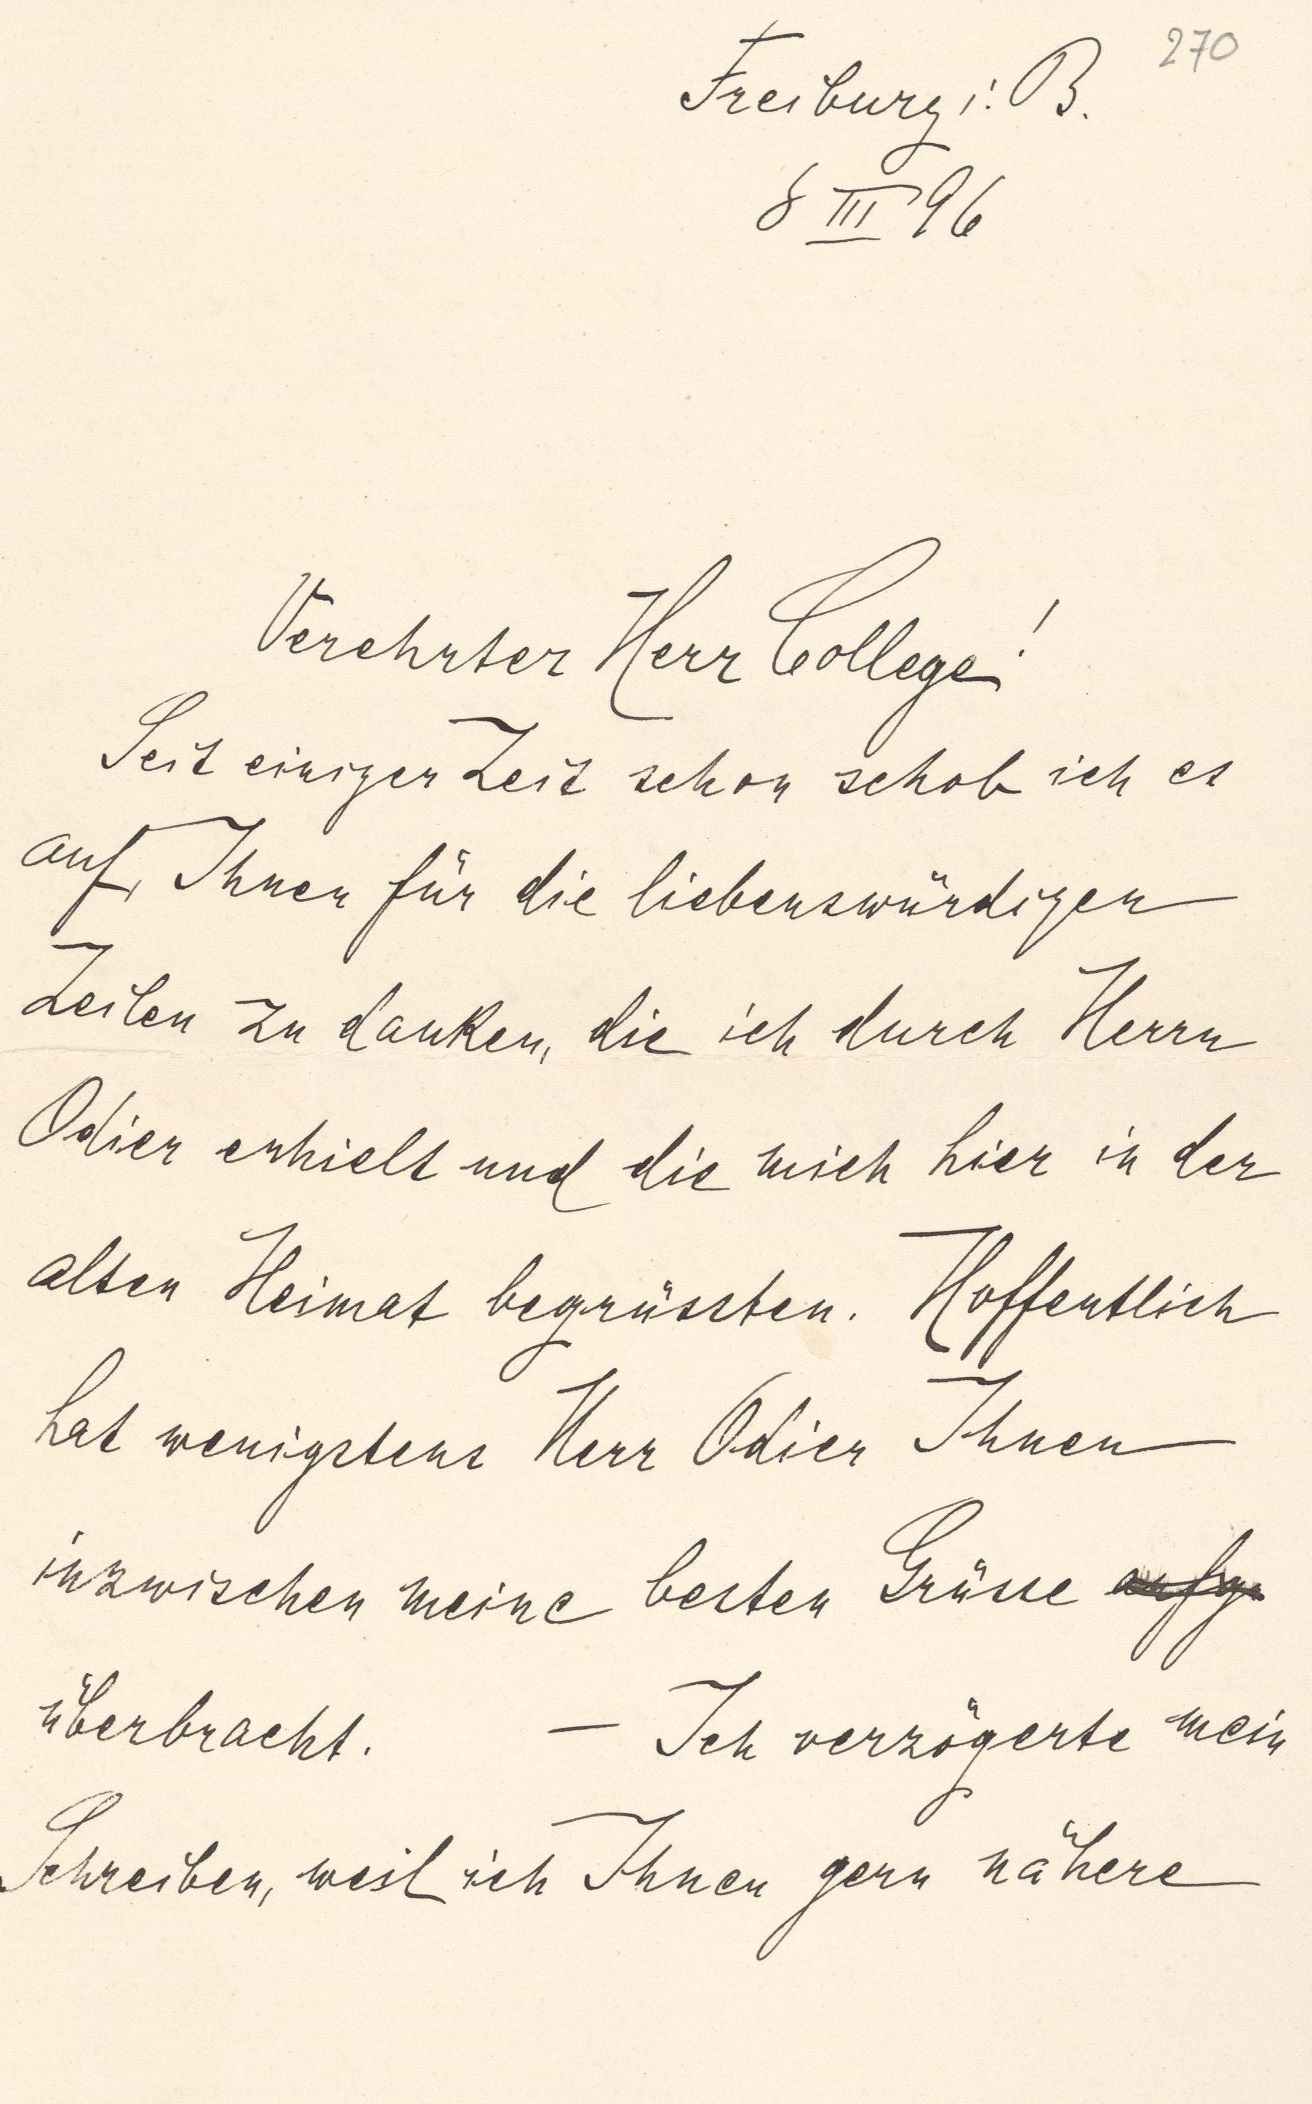 270
Freiburg i. B.
8 III 96
Verehrter Herr College!
Seit einiger Zeit schon schob ich es
auf, Ihnen für die liebenswürdigen
Zeilen zu danken, die ich durch Herrn
Odier erhielt und die mich hier in der
alten Heimat begrüssten. Hoffentlich
hat wenigstens Herr Odier Ihnen
inzwischen meine besten Grüsse
überbracht. — Ich verzögerte mein
Schreiben, weil ich Ihnen gern nähere